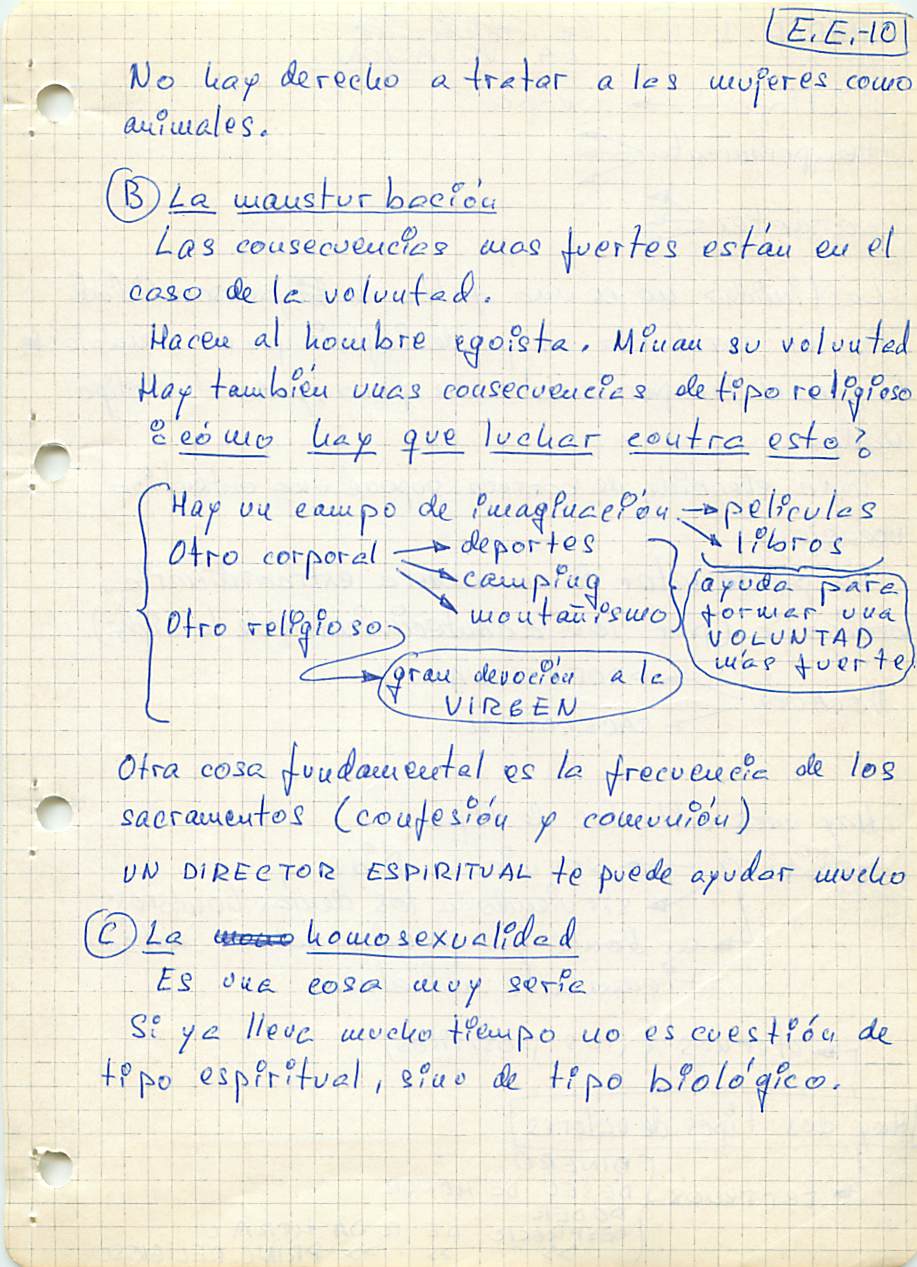 E.E.-10
No hay derecho a tratar a las mujeres como
animales.
B La mausturbación
Las consecuencias mas fuertes están en el
caso de la voluntad.
Hacen al hombre egoísta. Minan su voluntad
Hay también unas consecuencias de tipo religioso
¿cómo hay que luchar contra esto?
Hay un campo de imaginación → películas
libros
Otro corporal → deportes
camping
montañismo
ayuda para
formar una
VOLUNTAD
más fuerte
Otro religioso
gran devoción a la
VIRGEN
Otra cosa fundamental es la frecuencia de los
sacramentos (confesión y comunión)
UN DIRECTOR ESPIRITUAL te puede ayudar mucho
C La homosexualidad
Es una cosa muy seria
Si ya lleva mucho tiempo no es cuestión de
tipo espiritual, sino de tipo biológico.